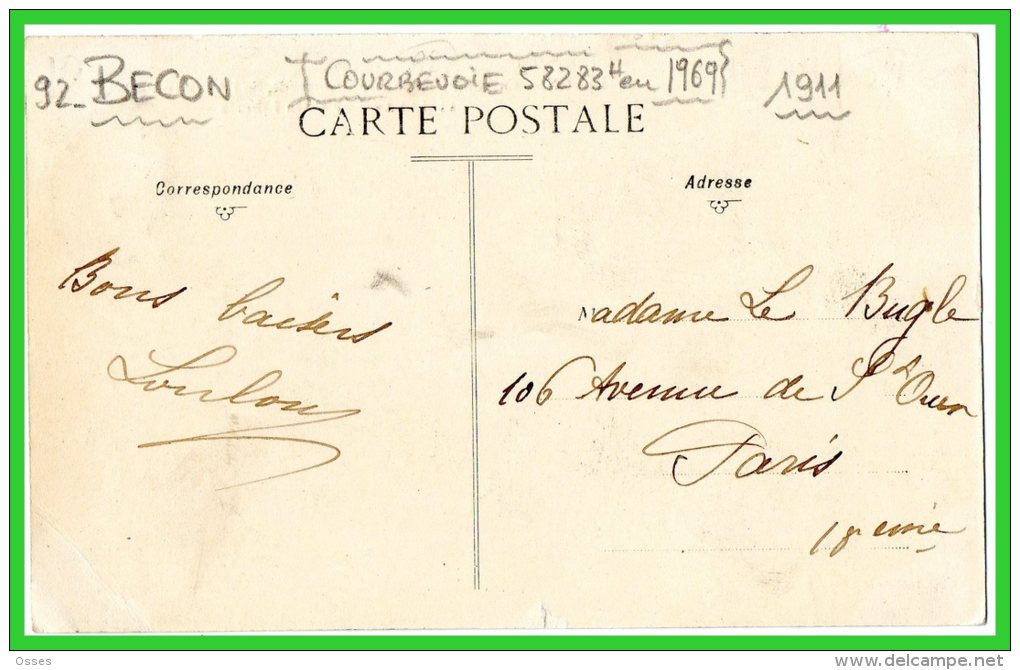 92_BECON
COURBEVOIE 58283H en 1969
1911
CARTE POSTALE
Correspondance
Bons baisers
Loulou
Adresse
Madame Le Bugle
106 Avenue de St Ouen
Paris
18eme
Osses
delcampe.net